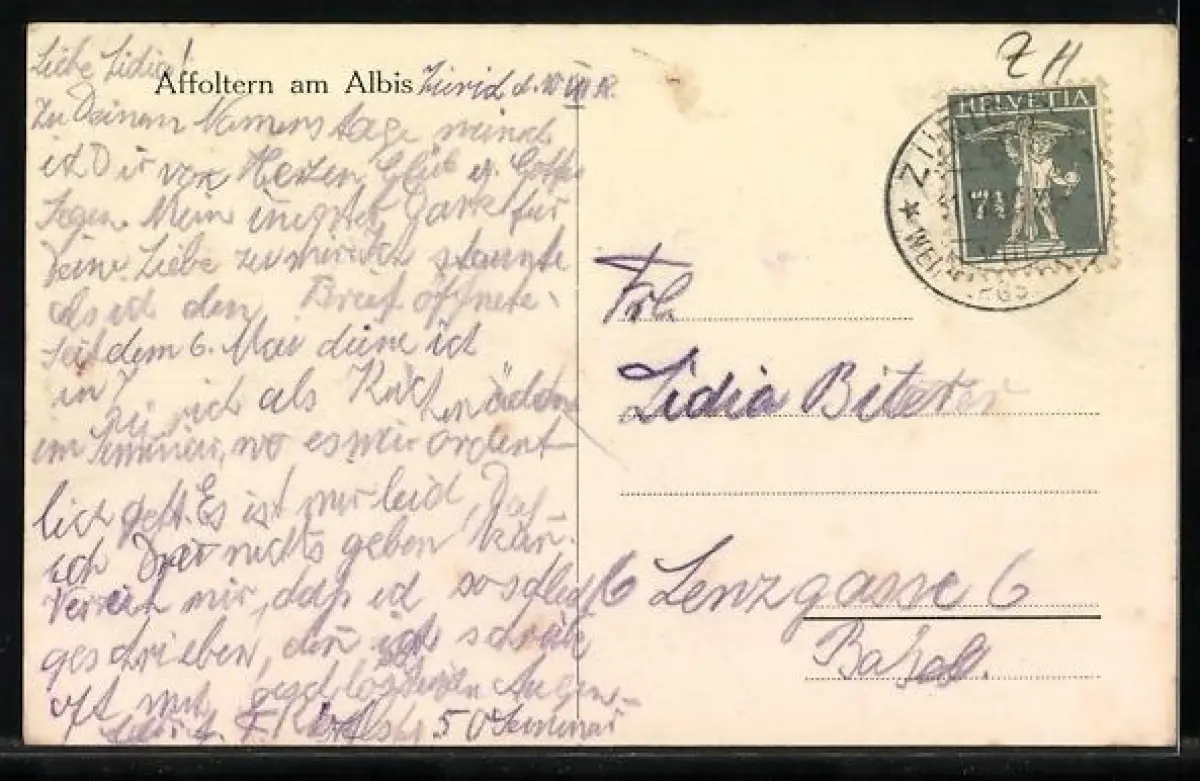 Liebe Lidia!
Affoltern am Albis
Zürich d.
Zu Deinem Namenstage wünsch
ich Dir von Herzen Glück u. Gottes
Segen. Mein innigster Dank für
Deine Liebe zu mir. Ich staunte
als ich den Brief öffnete.
Seit dem 6. Mai diene ich
in
Zürich als
im Seminar, wo es mir ordent
lich geht. Es ist mir leid, Daß
ich Dir nichts geben kan̄.
Verzeih mir, daß ich so schlecht
geschrieben, den̄ ich schreib
oft mit geschlossenen Augen
50 Seminar
Z H
HELVETIA
7½
ZÜRICH
Frl.
Lidia Biterer
Lenzgasse 6
Basel.